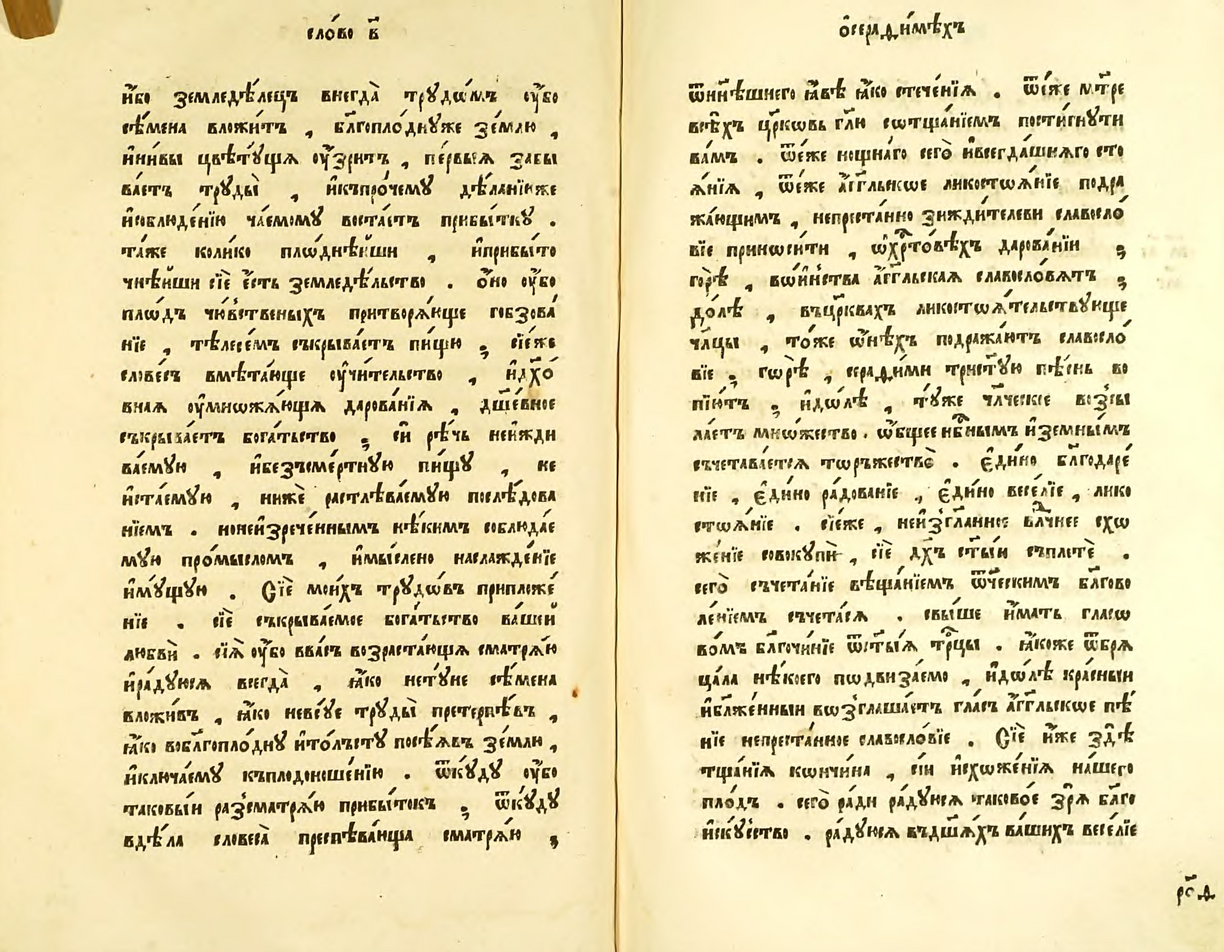 сло́во в҃
и҆́бо земледѣ́лецъ внегда̀ трꙋдѡ́мъ ᲂу҆́бо
сѣ́мена вложи́тъ , бл҃гоплоднꙋже зе́млю ,
и҆нивы цвѣтꙋ́щꙗ ᲂу҆́зритъ , пе́рвыꙗ забы
ва́етъ трꙋды̀ , и҆къпро́чемꙋ дѣ́ланїюже
и҆соблюде́нїю ча́емомꙋ воста́етъ прибы́ткꙋ .
та́же колико плѡднѣ́йши , и҆прибы́то
чнѣ́йши сїѐ є҆́сть земледѣ́льство . ѻ҆́но ᲂу҆́бо
пло́дъ чю́вственыхъ притворѧ́юще гобзова́
нїе , тѣлесе́мъ съкрыва́етъ пи́щю ; сїе́же
слове́съ вмѣта́юще ᲂу҆чи́тельство , и҆дх҃о́
внаꙗ ᲂу҆множа́ющꙗ дарова́нїꙗ , дш҃е́вное
съкрыва́етъ бога́тьство ; сі́и рѣ́чь неи҆жди
ва́емꙋю , и҆безъсме́ртнꙋю пи́щꙋ , не
и҆ста́емꙋю , нижѐ растлѣва́емꙋю послѣ́дова
нїемъ . нонеи҆зрече́ннымъ нѣ́кимъ соблюда́е
мꙋю про́мысломъ , и҆мы́слено наслажде́нїе
и҆мꙋ́щꙋю . Сїѐ мои́хъ трꙋдѡ́въ приложе́
нїе . сїѐ съкрыва́емое бога́тьство ва́шей
любвѝ . сїꙗ̀ ᲂу҆́бо вва́съ возраста́ющꙗ сматрѧ́ю
и҆ра́дꙋюсѧ всегда̀ , ꙗ҆́ко нетꙋ́не сѣ́мена
вложи́въ , ꙗ҆́ко невсꙋ́е трꙋды̀ претерпѣ́въ ,
ꙗ҆́ко вобл҃гопло́днꙋ и҆то́лъстꙋ посѣ́ѧвъ зе́млю ,
и҆ключа́емꙋ къплодоноше́нїю . ѿкꙋ́дꙋ ᲂу҆́бо
таковы́и разсматрѧ́ю прибы́токъ ; ѿкꙋ́дꙋ
вдѣ́ла словеса̀ преспѣва́юща сматрѧ́ю ;
ѻ҆серафи́мѣхъ
ѿни́нѣшнего ꙗ҆́вѣ ꙗ҆́ко стече́нїꙗ . ѿе́же мт҃ре
всѣ́хъ цр҃ковь гл҃ю сотща́нїемъ пости́гнꙋти
ва́мъ . ѿе́же нощна́го сего̀ и҆всегда́шнѧго сто
ѧ́нїꙗ , ѿе́же а҆́гг҃льское ликостоѧ́нїе подра
жа́ющимъ , непреста́нно зижди́телеви славосло́
вїе приноси́ти , ѽхр҃то́вѣхъ дарова́нїи ;
горѣ̀ , во́и҆нства а҆́гг҃льскаꙗ славосло́вѧтъ ;
до́лѣ , въцр҃квахъ ликостоѧ́тельствꙋюще
чл҃цы , то́же ѻ҆́нѣхъ подража́ютъ славосло́
вїе ; горѣ̀ , серафи́ми тристꙋ́ю пѣ́снь во
пїю́тъ ; и҆до́лѣ , тꙋ́же чл҃ческїе во́зсы
ла́етъ мно́жество . ѻ҆́бщее нб҃нымъ и҆земны́мъ
съчетава́етсѧ тѡ́ржество̀ . є҆ди́но бл҃годаре́
нїе , є҆ди́но ра́дованїе , є҆ди́но весе́лїе , лико
стоѧ́нїе . сїе́же , неи҆згл҃анное вл҃чнее схо
же́нїе совокупѝ , сїѐ дх҃ъ ст҃ы́и съплетѐ .
сего̀ съчета́нїе вѣща́нїемъ ѿе́ческимъ бл҃гово
ле́нїемъ съчета́сѧ . свы́ше и҆́мать гласо
во́мъ бл҃гочи́нїе ѿст҃ы́ꙗ тр҃цы . ꙗ҆́коже ѿбрѧ
ца́ла нѣ́коего подвиза́емо , и҆до́лѣ кра́сныи
и҆бл҃же́нныи возглаша́етъ гла́съ а҆́гг҃льское пѣ́
нїе непреста́нное славосло́вїе . Сїѐ и҆́же здѣ̀
тща́нїꙗ кончи́на , сі́и и҆схоже́нїꙗ на́шего
пло́дъ . сего̀ ра́ди ра́дꙋюсѧ таково́е зрѧ̀ бл҃го
и҆скꙋ́ство . ра́дꙋюсѧ въдш҃а́хъ ва́шихъ весе́лїе